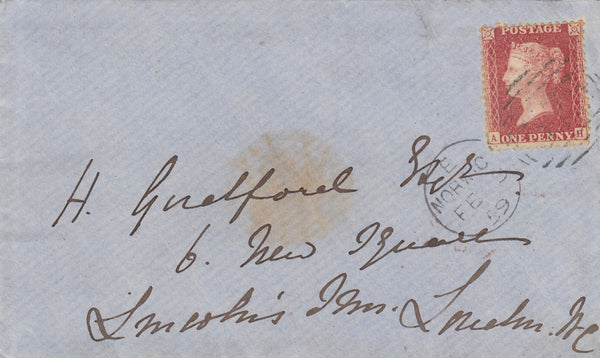 POSTAGE
A H
ONE PENNY
NORWIC
FE
59
H. Guildford Esqr
6. New Square
Lincoln's Inn. London. W.C